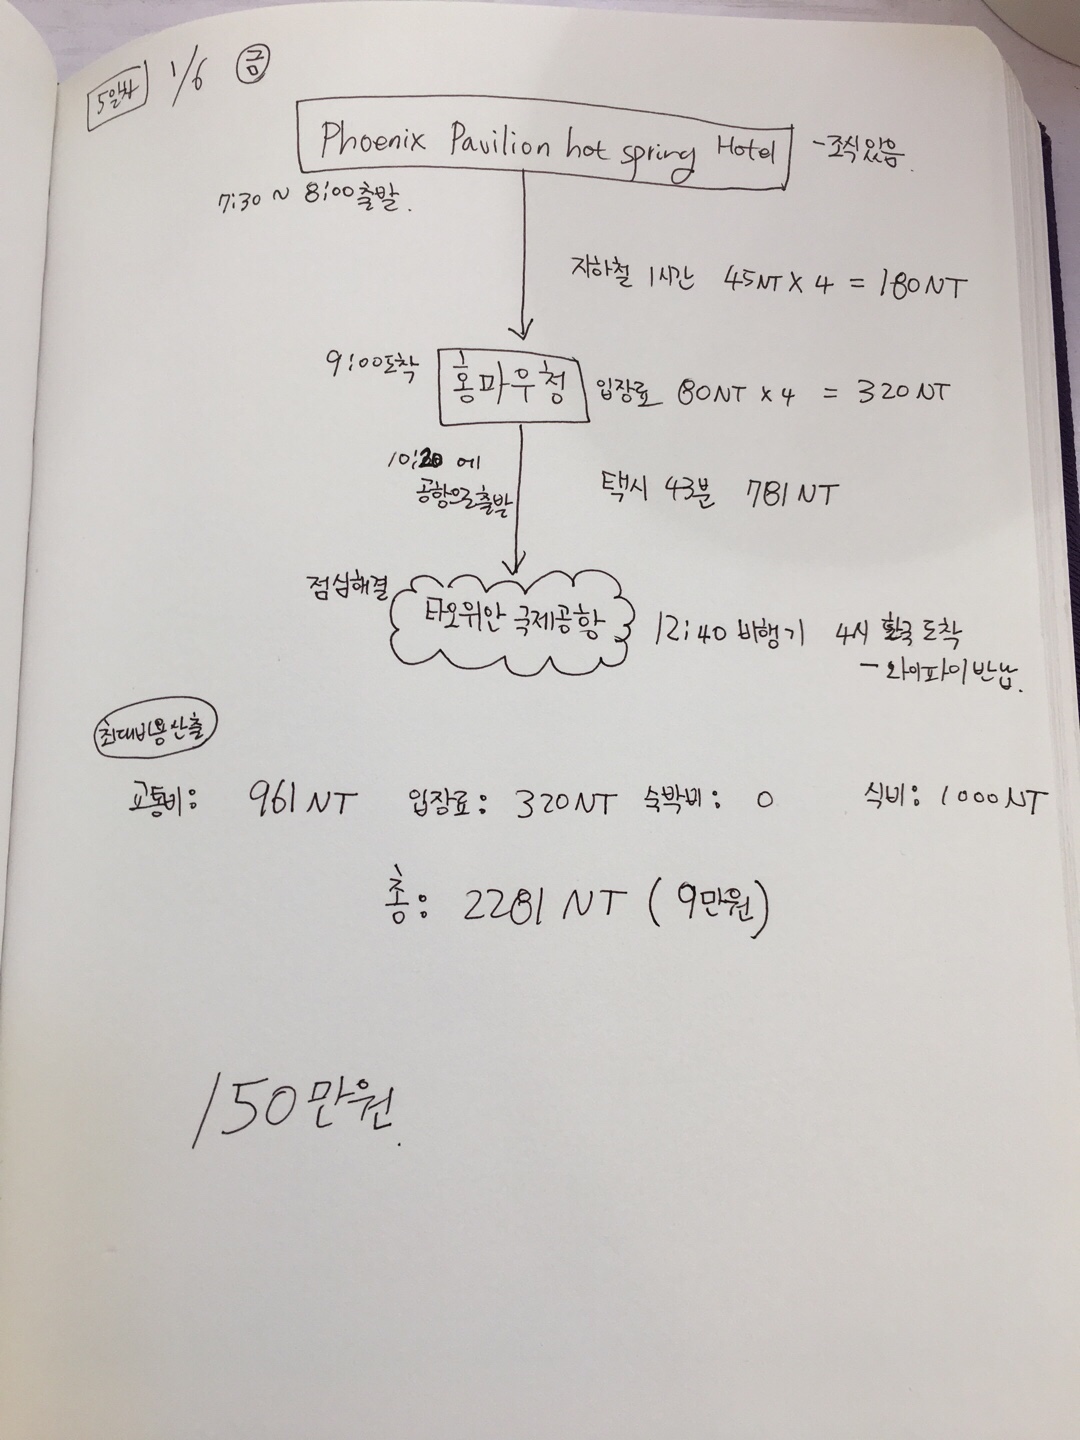 5일차 1/6 금
Phoenix Pavilion hot spring Hotel -조식있음.
7:30 ~ 8:00출발.
지하철 1시간 45NT X 4 = 180NT
9:00도착 홍마우청 입장료 80NT x 4 = 320NT
10:20 에
공항으로출발
택시 43분 781NT
점심해결
타오위안 국제공항 12:40 비행기 4시 한국 도착
- 와이파이반납.
최대비용산출
교통비: 961NT 입장료: 320NT 숙박비: 0 식비: 1000NT
총: 2281 NT (9만원)
150만원.